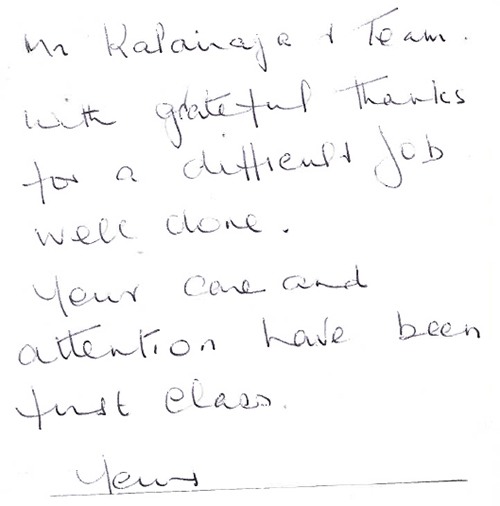 Mr Kalairaja & Team.
With grateful thanks
for a difficult job
well done.
Your care and
attention have been
first class.
Yours